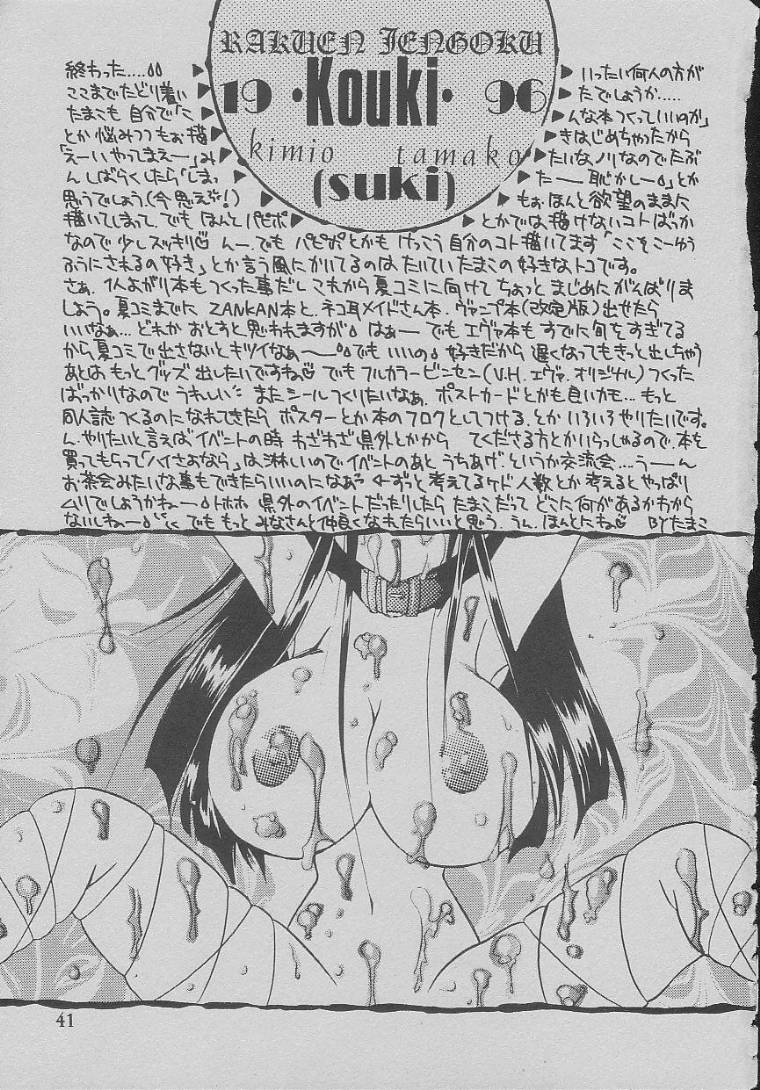 RAKUEN JENGOKU
19 ・Kouki・ 96
kimio tamako
(suki)
終わった....
いったい何人の方が
ここまでたどり着い
たでしょうか.....
たまこも自分で「こ
んな本つくっていいのか」
とか悩みつつもぉ描
きはじめちゃったから
「えーいやってまえー」み
たいなノリなのでたぶ
んしばらくしたら「しまっ
たー恥かしー」とか
思うでしょう。(今思えぶ!)
もぉほんと欲望のままに
描いてしまって、でもほんとパピポ
とかでは描けないコトばっか
なので少しスッキリ んー、でもパピポとかもけっこう自分のコト描いてます「ここそこーゆう
ふうにされるの好き」とか言う風にかいてるのはたいていたまこの好きなトコです。
さぁ、1人よがり本もつくった事だしこれから夏コミに向けてちょっとまじめにがんばりま
しょう。夏コミまでに ZANKAN本と、ネコ耳メイドさん本、ヴァンプ本(改定版)出せたら
いいなぁ...どれかおとすと思われますが はぁー でもエヴァ本もすでに旬をすぎてる
から夏コミで出さないとキツイなぁ〜 でもいいの 好きだから遅くなってもきっと出しちゃう
あとはもっとグッズ出したいですね でもフルカラービンセン(V.H. エヴァ.オリジナル)つくった
ばっかりなのでうれしい またシールつくりたいなぁ、ポストカードとかも良いカモ...もっと
同人誌つくるのになれてきたらポスターとか本のフロクとしてつける、とかいろいろやりたいです。
ん、やりたいと言えばイベントの時 わざわざ県外とかから てくださる方とかいらっしゃるので、本を
買ってもらって「ハイさよなら」は淋しいのでイベントのあとうちあげ、というか交流会....うーん
お茶会みたいな事もできたらいいのになぁ ←ずっと考えてるケド人数とか考えるとやっぱり
ムリでしょうかねー トホホ 県外のイベントだったりしたらたまこだってどこに何があるかわから
ないしねー でももっとみなさんと仲良くなれたらいいと思う、うん、ほんとにね BYたまこ
41